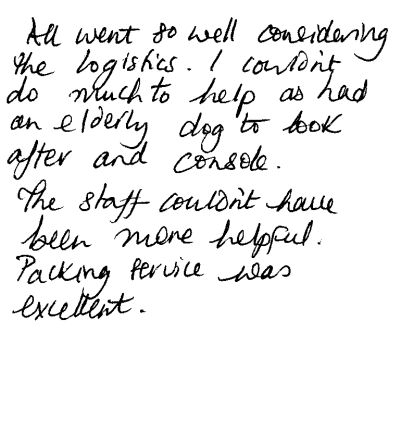 All went so well considering
the logistics. I couldn't
do much to help as had
an elderly dog to look
after and console.
The staff couldn't have
been more helpful.
Packing service was
excellent.